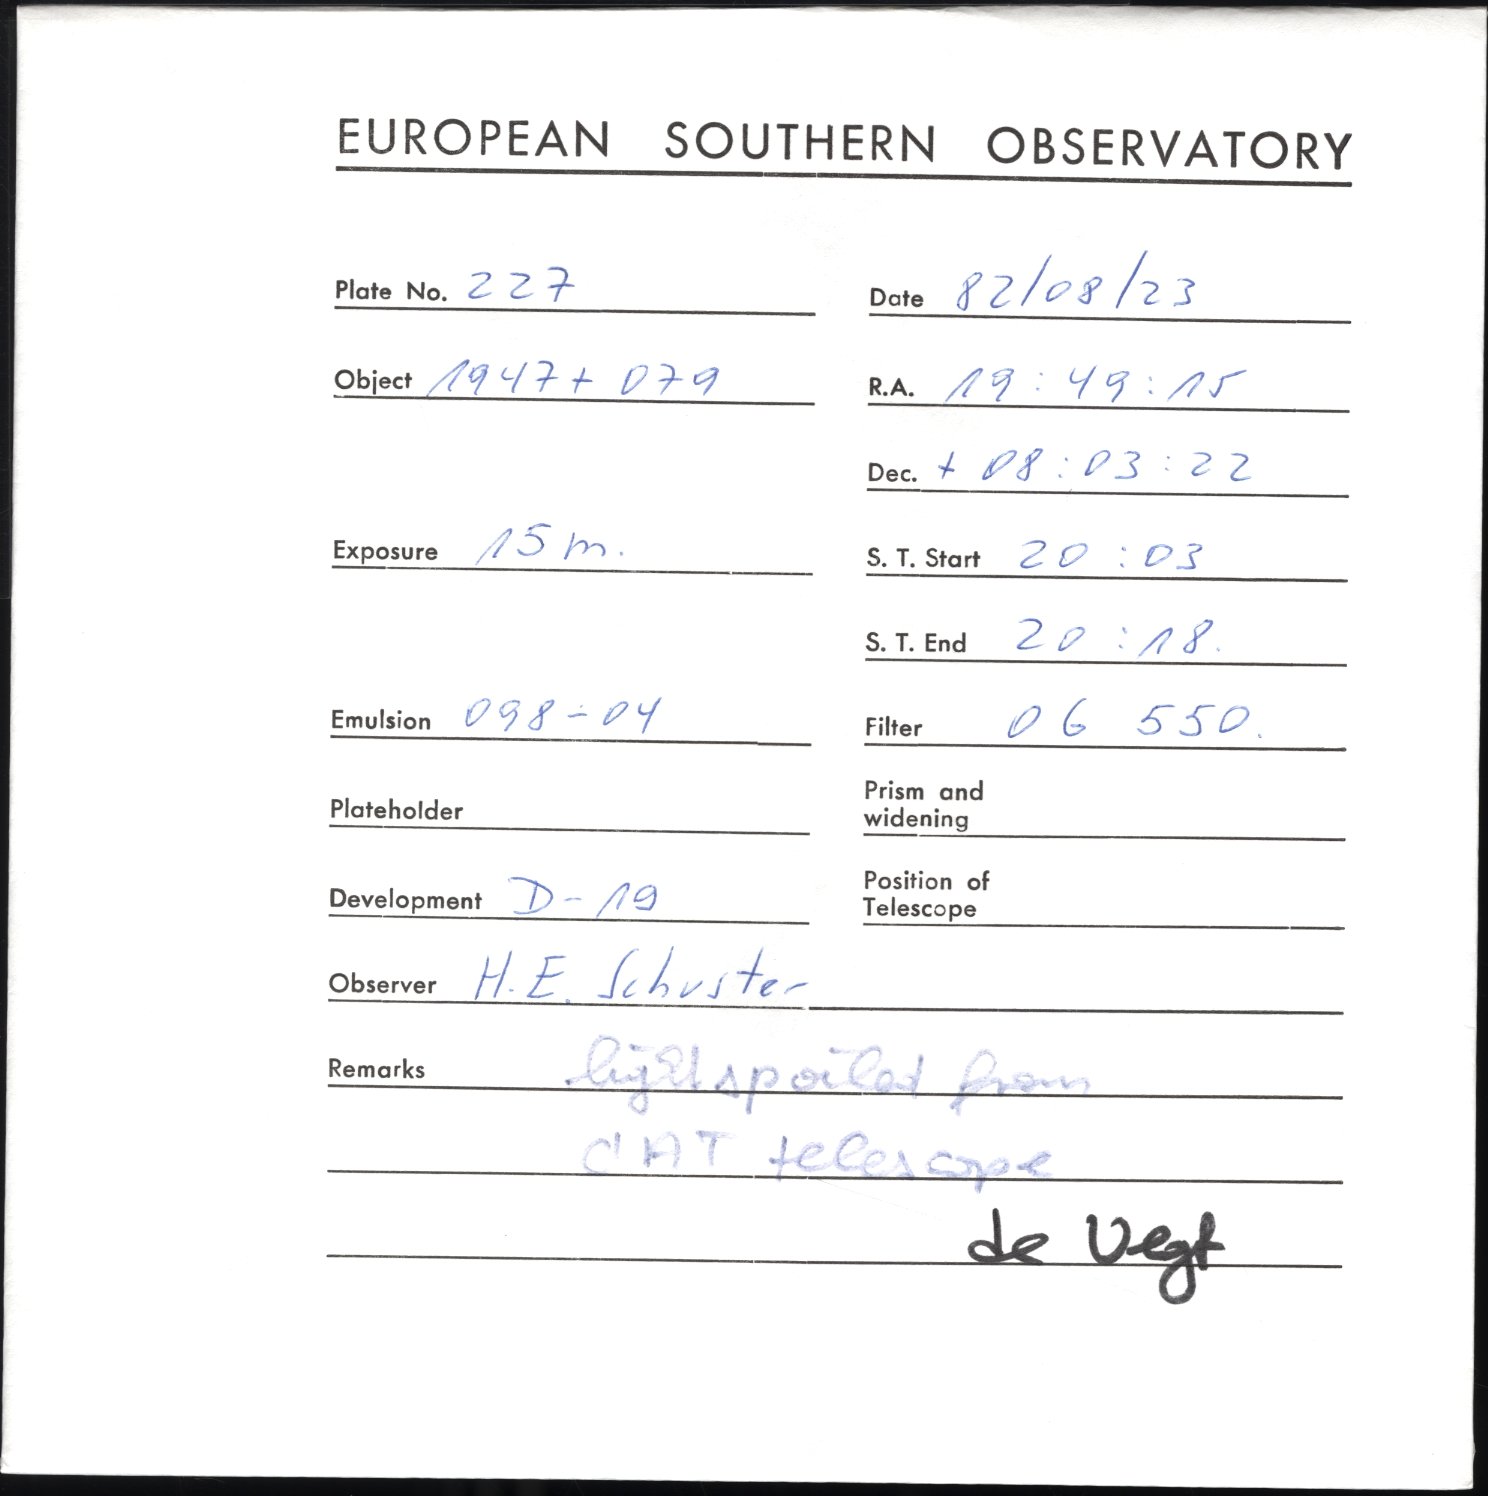 EUROPEAN SOUTHERN OBSERVATORY
Plate No. 227
Date 82/08/23
Object 1947+079
R.A. 19:49:15
Dec. +08:03:22
Exposure 15m.
S. T. Start 20:03
S. T. End 20:18.
Emulsion 098-04
Filter OG 550.
Plateholder
Prism and
widening
Development D-19
Position of
Telescope
Observer H.E. Schuster
Remarks lightspoiled from
CAT telescope
de Vegt